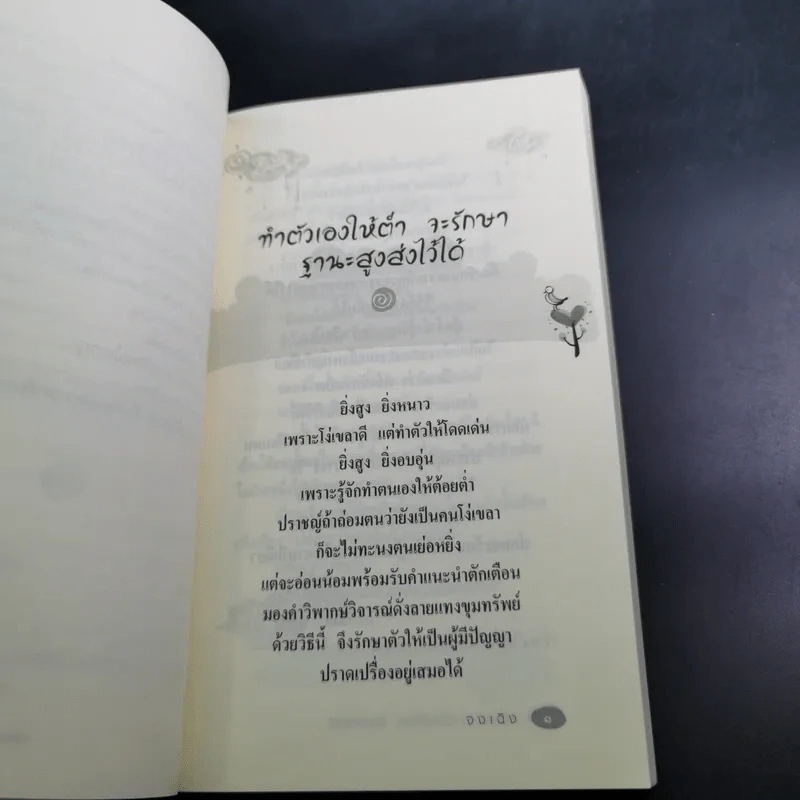 ทำตัวเองให้ต่ำ จะรักษา
ฐานะสูงส่งไว้ได้
ยิ่งสูง ยิ่งหนาว
เพราะโง่เขลาดี แต่ทำตัวให้โดดเด่น
ยิ่งสูง ยิ่งอบอุ่น
เพราะรู้จักทำตนเองให้ต้อยต่ำ
ปราชญ์ถ้าถ่อมตนว่ายังเป็นคนโง่เขลา
ก็จะไม่ทะนงตนเย่อหยิ่ง
แต่จะอ่อนน้อมพร้อมรับคำแนะนำตักเตือน
มองคำวิพากษ์วิจารณ์ดั่งลายแทงขุมทรัพย์
ด้วยวิธีนี้ จึงรักษาตัวให้เป็นผู้มีปัญญา
ปราดเปรื่องอยู่เสมอได้
จงเฉิง